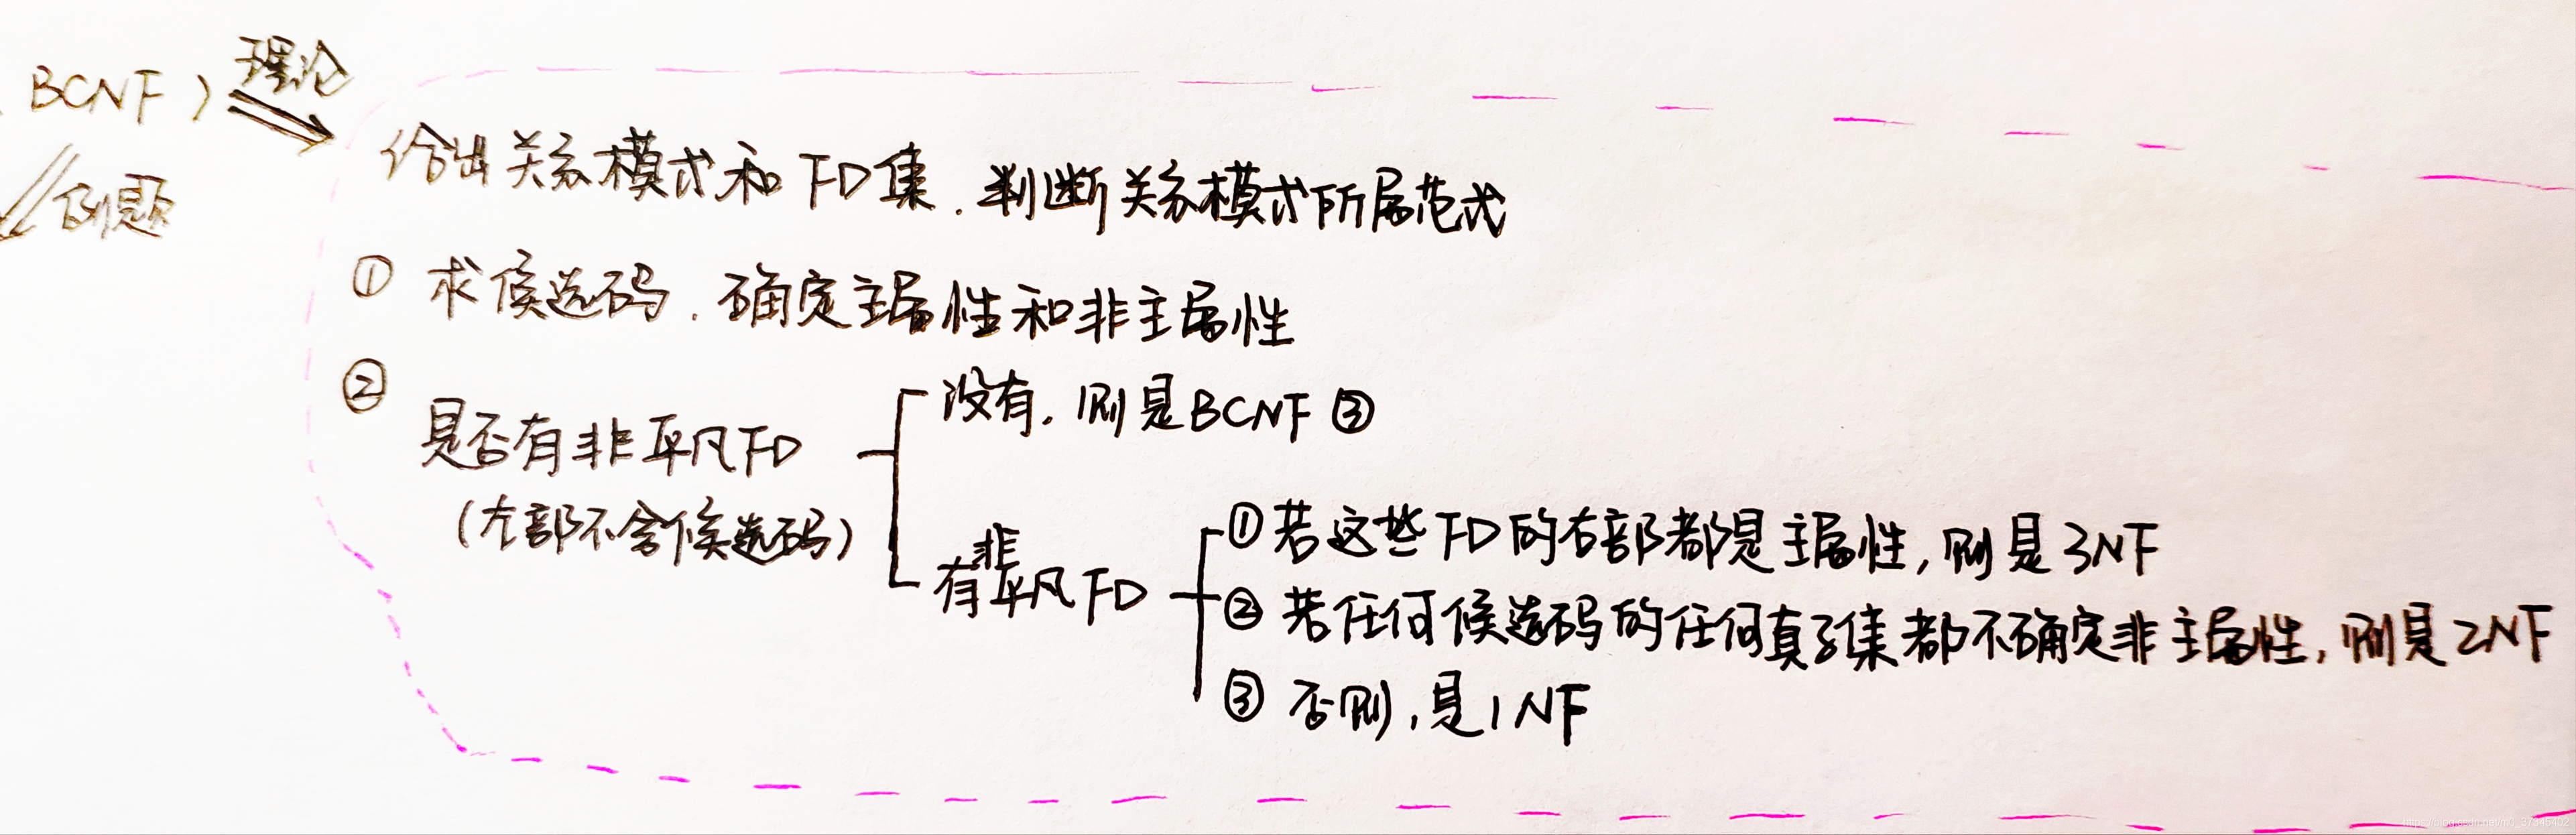 BCNF )
理论
例题
给出关系模式和FD集.判断关系模式所属范式
① 求候选码.确定主属性和非主属性
②
是否有非平凡FD
(左部不含候选码)
没有,则是BCNF ③
有非平凡FD
①若这些FD的右部都是主属性,则是3NF
②若任何候选码的任何真子集都不确定非主属性,则是2NF
③ 否则,是1NF